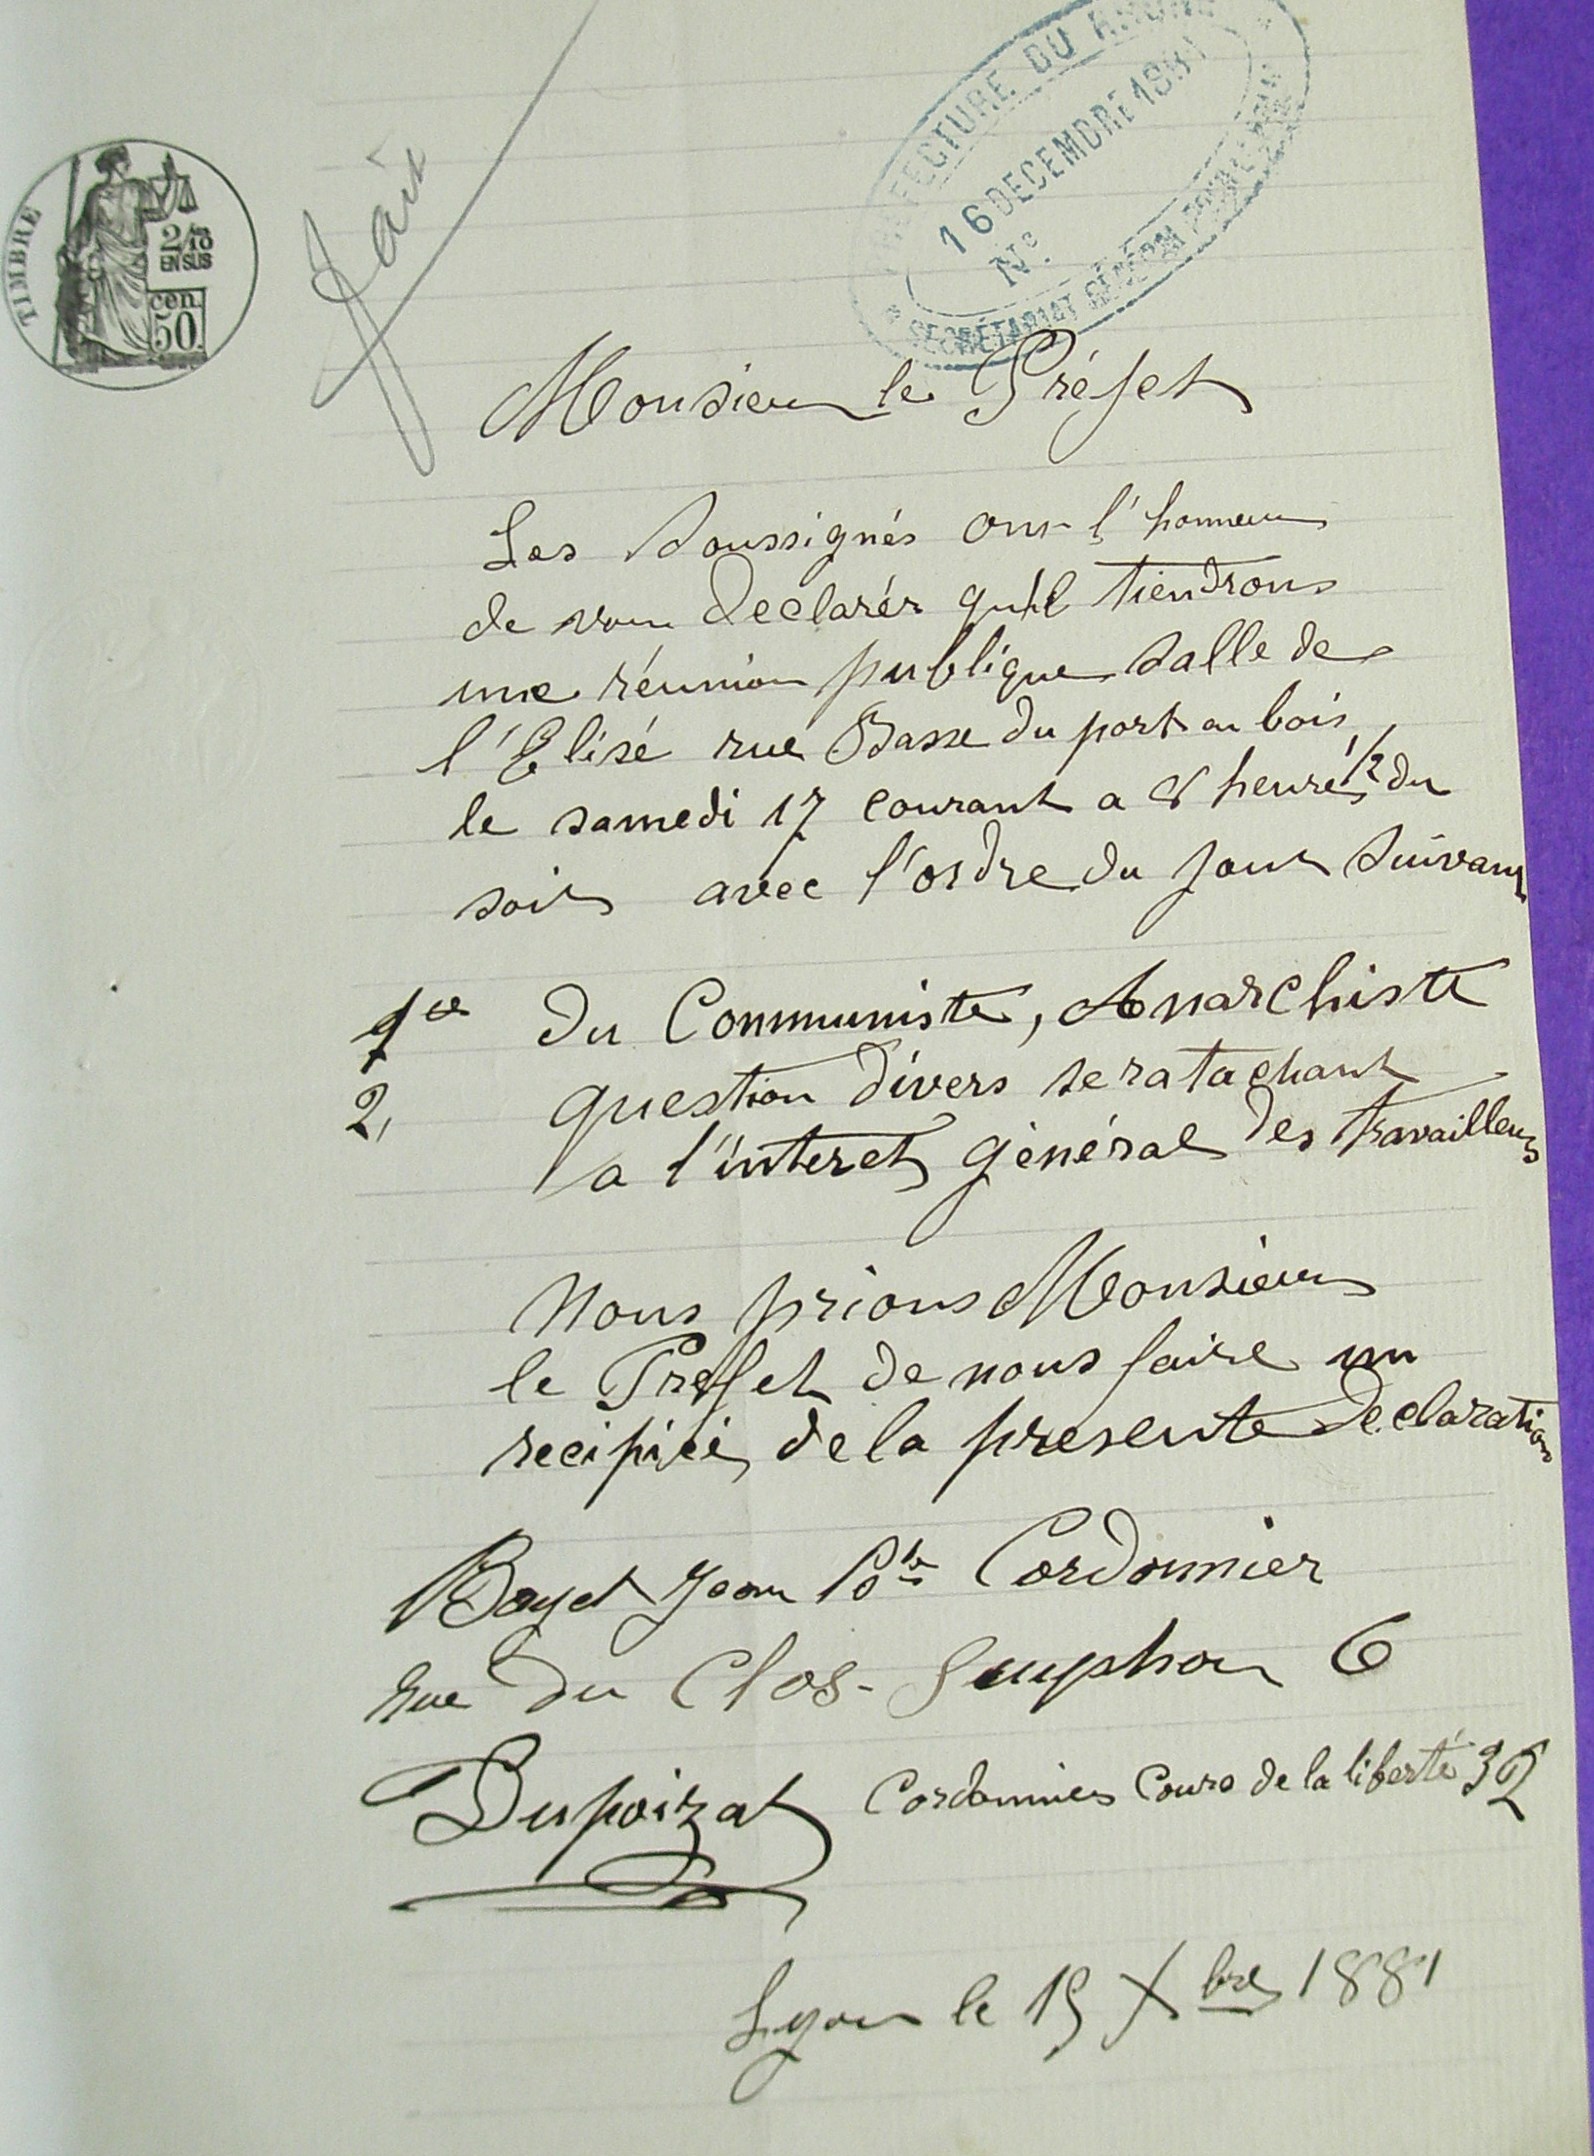 PRÉFECTURE DU RHONE
16 DECEMBRE 1881
N°
SECRÉTARIAT GÉNÉRAL POUR LA POLICE
TIMBRE
2/10
EN SUS
cen.
50.
fait
Monsieur le Préfet
Les Soussignés ont l'honneur
de vous declarér qu'il tiendrons
une réunion publique Salle de
l'Elisé rué Basse du port au bois
le samedi 17 courant a 8 heure 1/2 du
soir avec l'ordre du jour Suivant
1er Du Communiste, Anarchiste
2, question divers se ratachant
a l'interet général des travailleurs
Nous prions Monsieur
le Prefet de nous faire un
recipicé de la presente Declaration
Bayet Jean Bte Cordonnier
Rue du Clos-Suyphon 6
Dupoizat Cordonnier Cours de la liberté 32
Lyon le 15 Xbre 1881